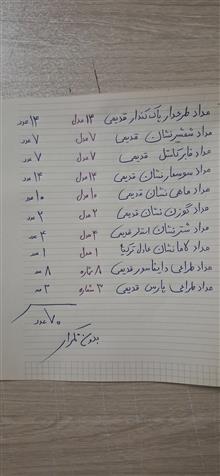 مداد طرحدار پاک کندار قدیمی ۱۳ مدل ۱۳ عدد
مداد شمشیرنشان قدیمی ۷ مدل ۷ عدد
مداد فابرکاستل قدیمی ۷ مدل ۷ عدد
مداد سوسمارنشان قدیمی ۱۴ مدل ۱۴ عدد
مداد ماهی نشان قدیمی ۱۰ مدل ۱۰ عدد
مداد گوزن نشان قدیمی ۲ مدل ۲ عدد
مداد شترنشان قدیمی ۴ مدل ۴ عدد
مداد نشان ۱ مدل ۱ عدد
مداد طراحی قدیمی ۸ شماره ۸ عدد
مداد طراحی پارس قدیمی ۳ شماره ۳ عدد
۷۰ عدد
بدون تکرار